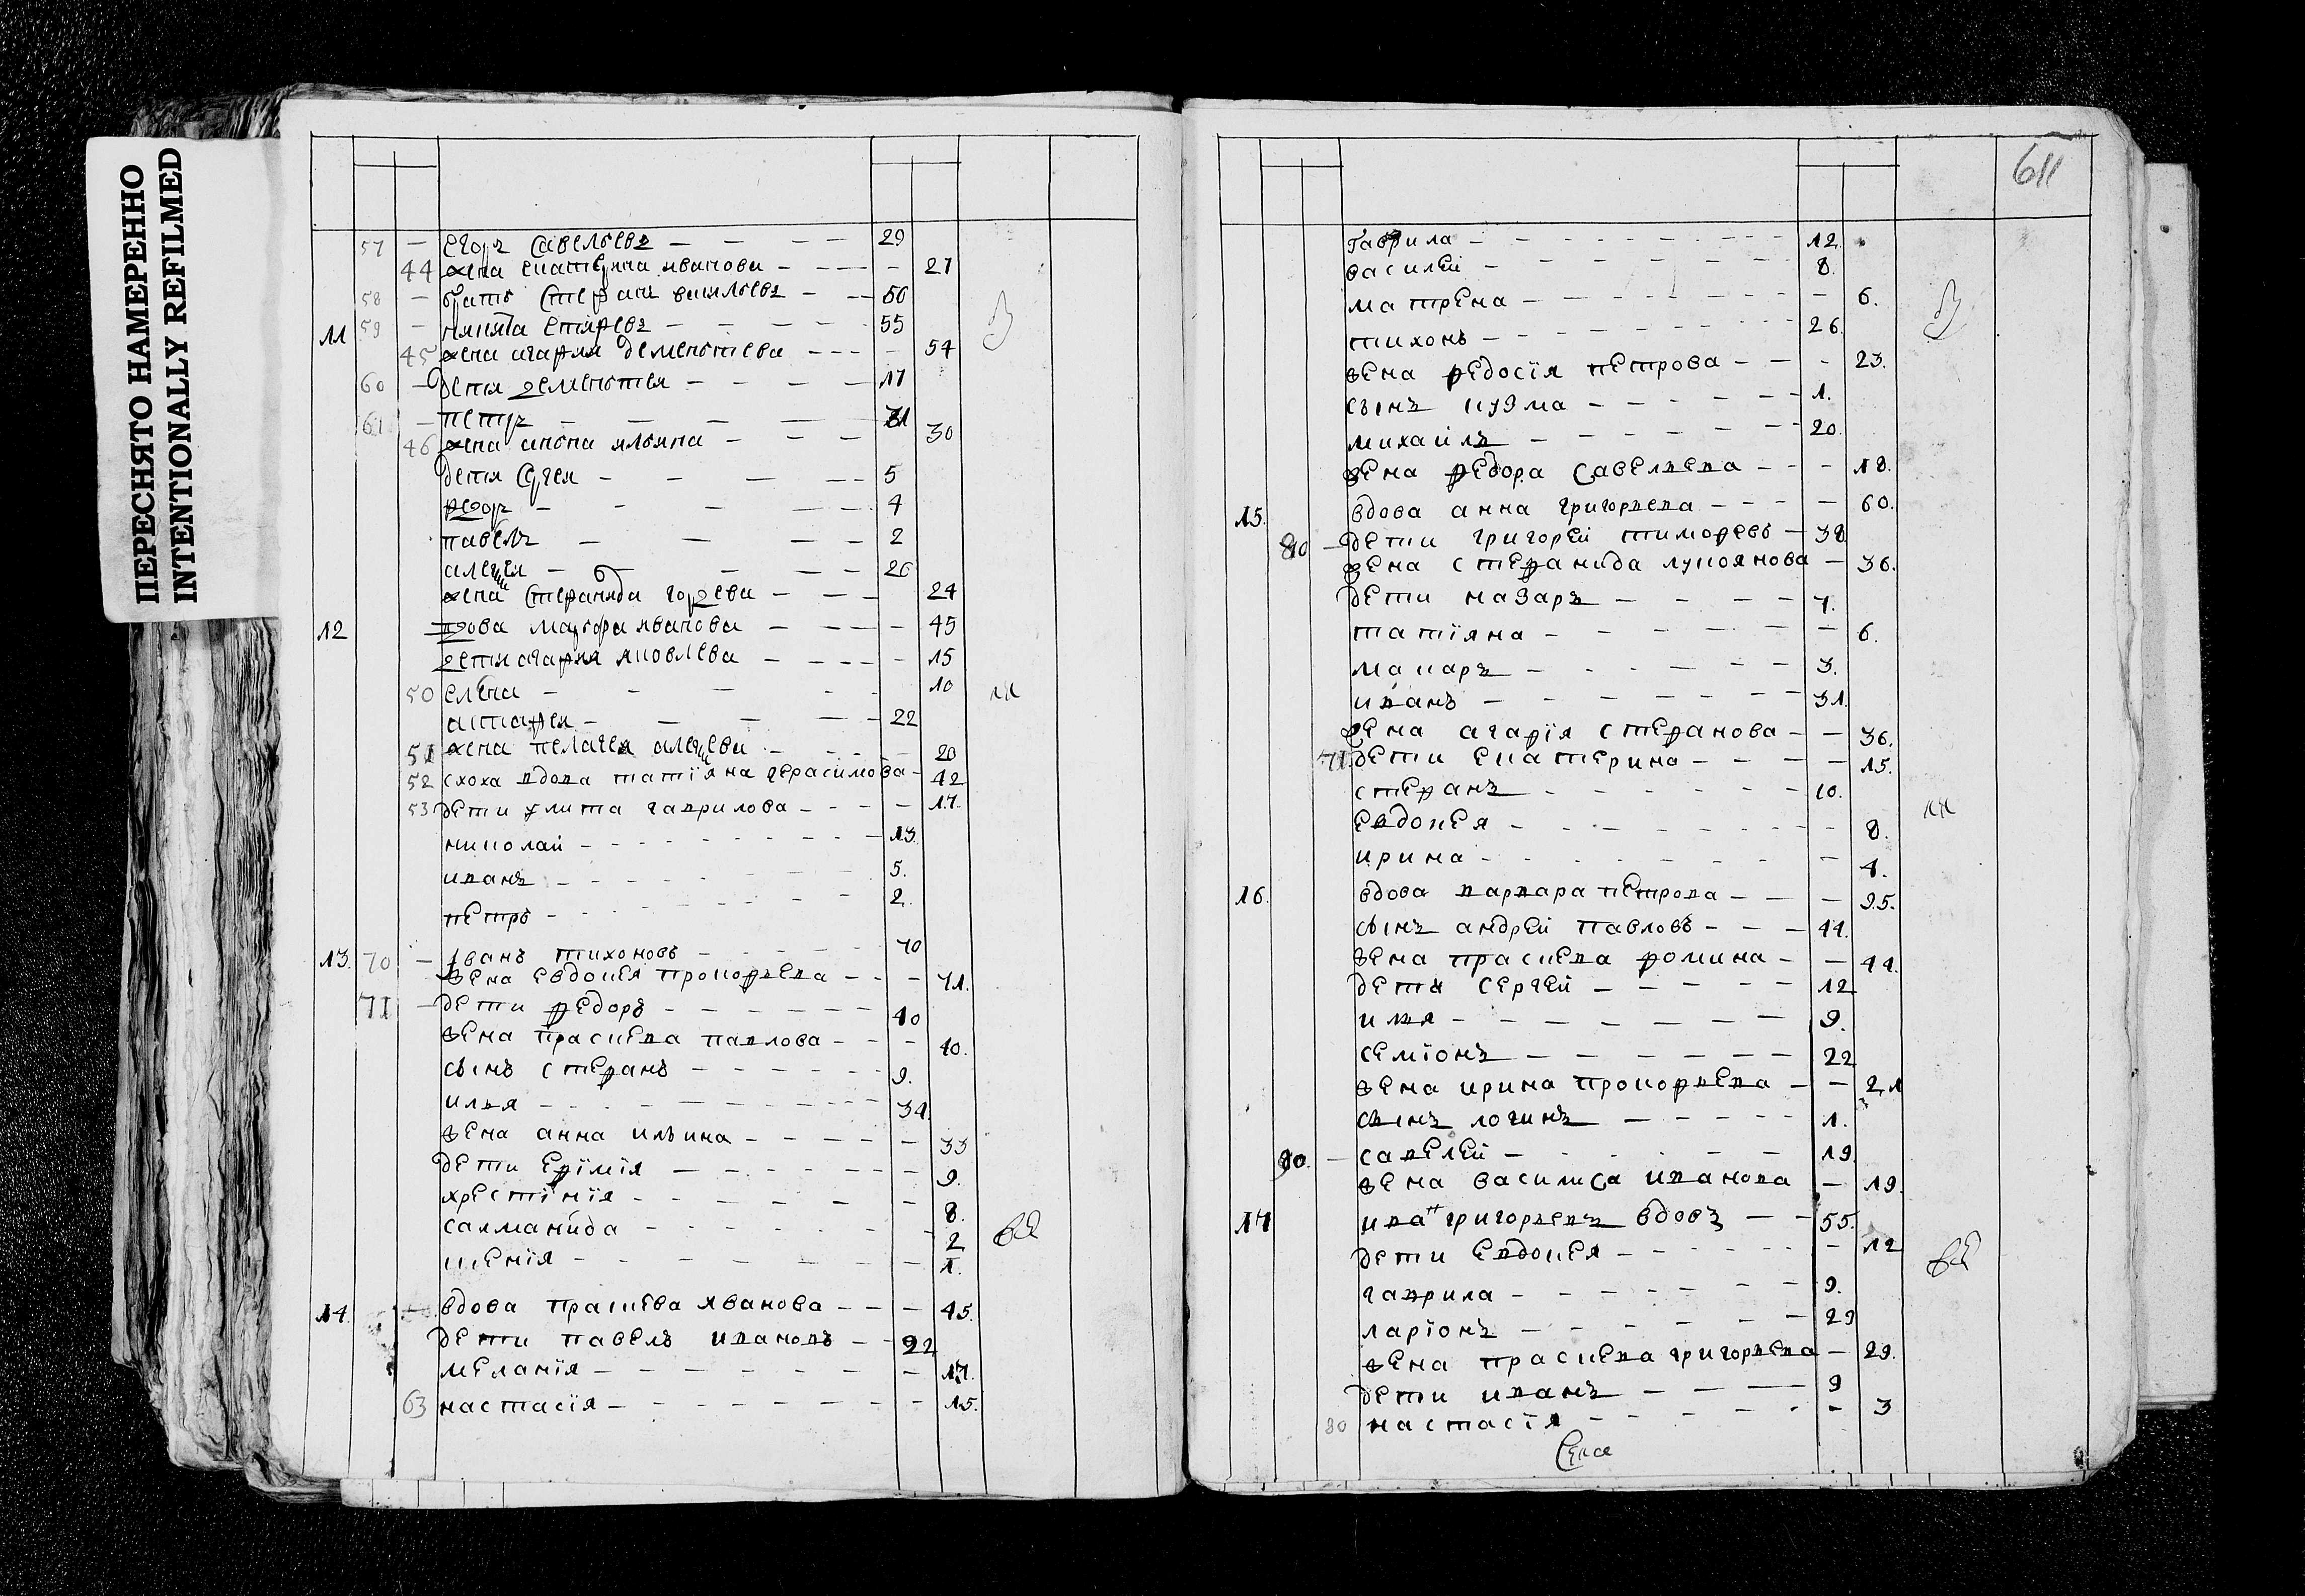 ПЕРЕСНЯТО НАМЕРЕННО
INTENTIONALLY REFILMED
57 — егоръ савельевъ — — — — 29
44 жена екатерина иванова — — — — 27
58 — братъ стефанъ васильевъ — — — 56
11 59 — никита — — — — 55
45 жена агафия дементиева — — — — 54
60 — дети дементия — — — — 17
61 — петръ — — — — 31
46 жена — — — 30
дети сергея — — — — — 5
федоръ — — — — — 4
павелъ — — — — 2
алексея — — — — — 26
жена стефанида — — — 24
12 вдова марфа иванова — — — — — 45
дети агафия яковлева — — — — — 15
50 елена — — — — — 10
— — — — — 22
51 жена пелагея алексеева — — — — 20
52 сноха вдова татїяна герасимова — 42
53 дети улита гаврилова — — — — 17.
николай — — — — — — — — 13.
иванъ — — — — — — 5.
петръ — — — — — — 2.
13. 70 — иванъ тихоновъ — — — — — 70
жена евдокея прокофьева — — — 71.
71 — дети федоръ — — — — — — 40
жена прасковья павлова — — — 40.
сынъ стефанъ — — — — — — 9.
илья — — — — — — — — 34.
жена анна ильина — — — — — 33
дети ефїмїя — — — — — — — 9.
хрестїнїя — — — — — — 8.
саламанида — — — — — — 2
ксенїя — — — — — — — 1.
14. — вдова праскева иванова — — — 45.
дети павелъ ивановъ — — 22
меланїя — — — — — — — 17.
63 настасїя — — — — — — — — 15.
611
гаврила — — — — — — — — — 12.
василей — — — — — — — 8.
матрена — — — — — — — 6.
тихонъ — — — — — — — — 26.
жена федосїя петрова — — — 23.
сынъ кузма — — — — — — 1.
михайлъ — — — — — — — 20.
жена федора савельева — — — 18.
15. вдова анна григорьева — — — — 60.
80 — дети григорей тимофевъ — 38
жена стефанида лукоянова — 36.
дети назаръ — — — — 7.
татїяна — — — — — — 6.
макаръ — — — — — — 3.
иванъ — — — — — — — 31.
жена агафїя стефанова — — 36.
71. дети екатерина — — — — — 15.
стефанъ — — — — — — 10.
евдокея — — — — — — — — 8.
ирина — — — — — — — — 4.
16. вдова варвара петрова — — — 95.
сынъ андрей павловъ — — — 44.
жена праскева фомина — — 44.
дети сергей — — — — — 12
илья — — — — — — — 9.
семїонъ — — — — — — 22
жена ирина прокофьева — — 21
сынъ логинъ — — — — — 1.
90. — савелей — — — — — — 19.
жена василиса иванова — 19.
17 иванъ григорьевъ вдовъ — — 55.
дети евдокея — — — — — — — 12
гаврила — — — — — — — 9.
ларїонъ — — — — — — 29
жена праскева григорьева — 29.
дети иванъ — — — — 9
80 настасїя — — — — — — 3